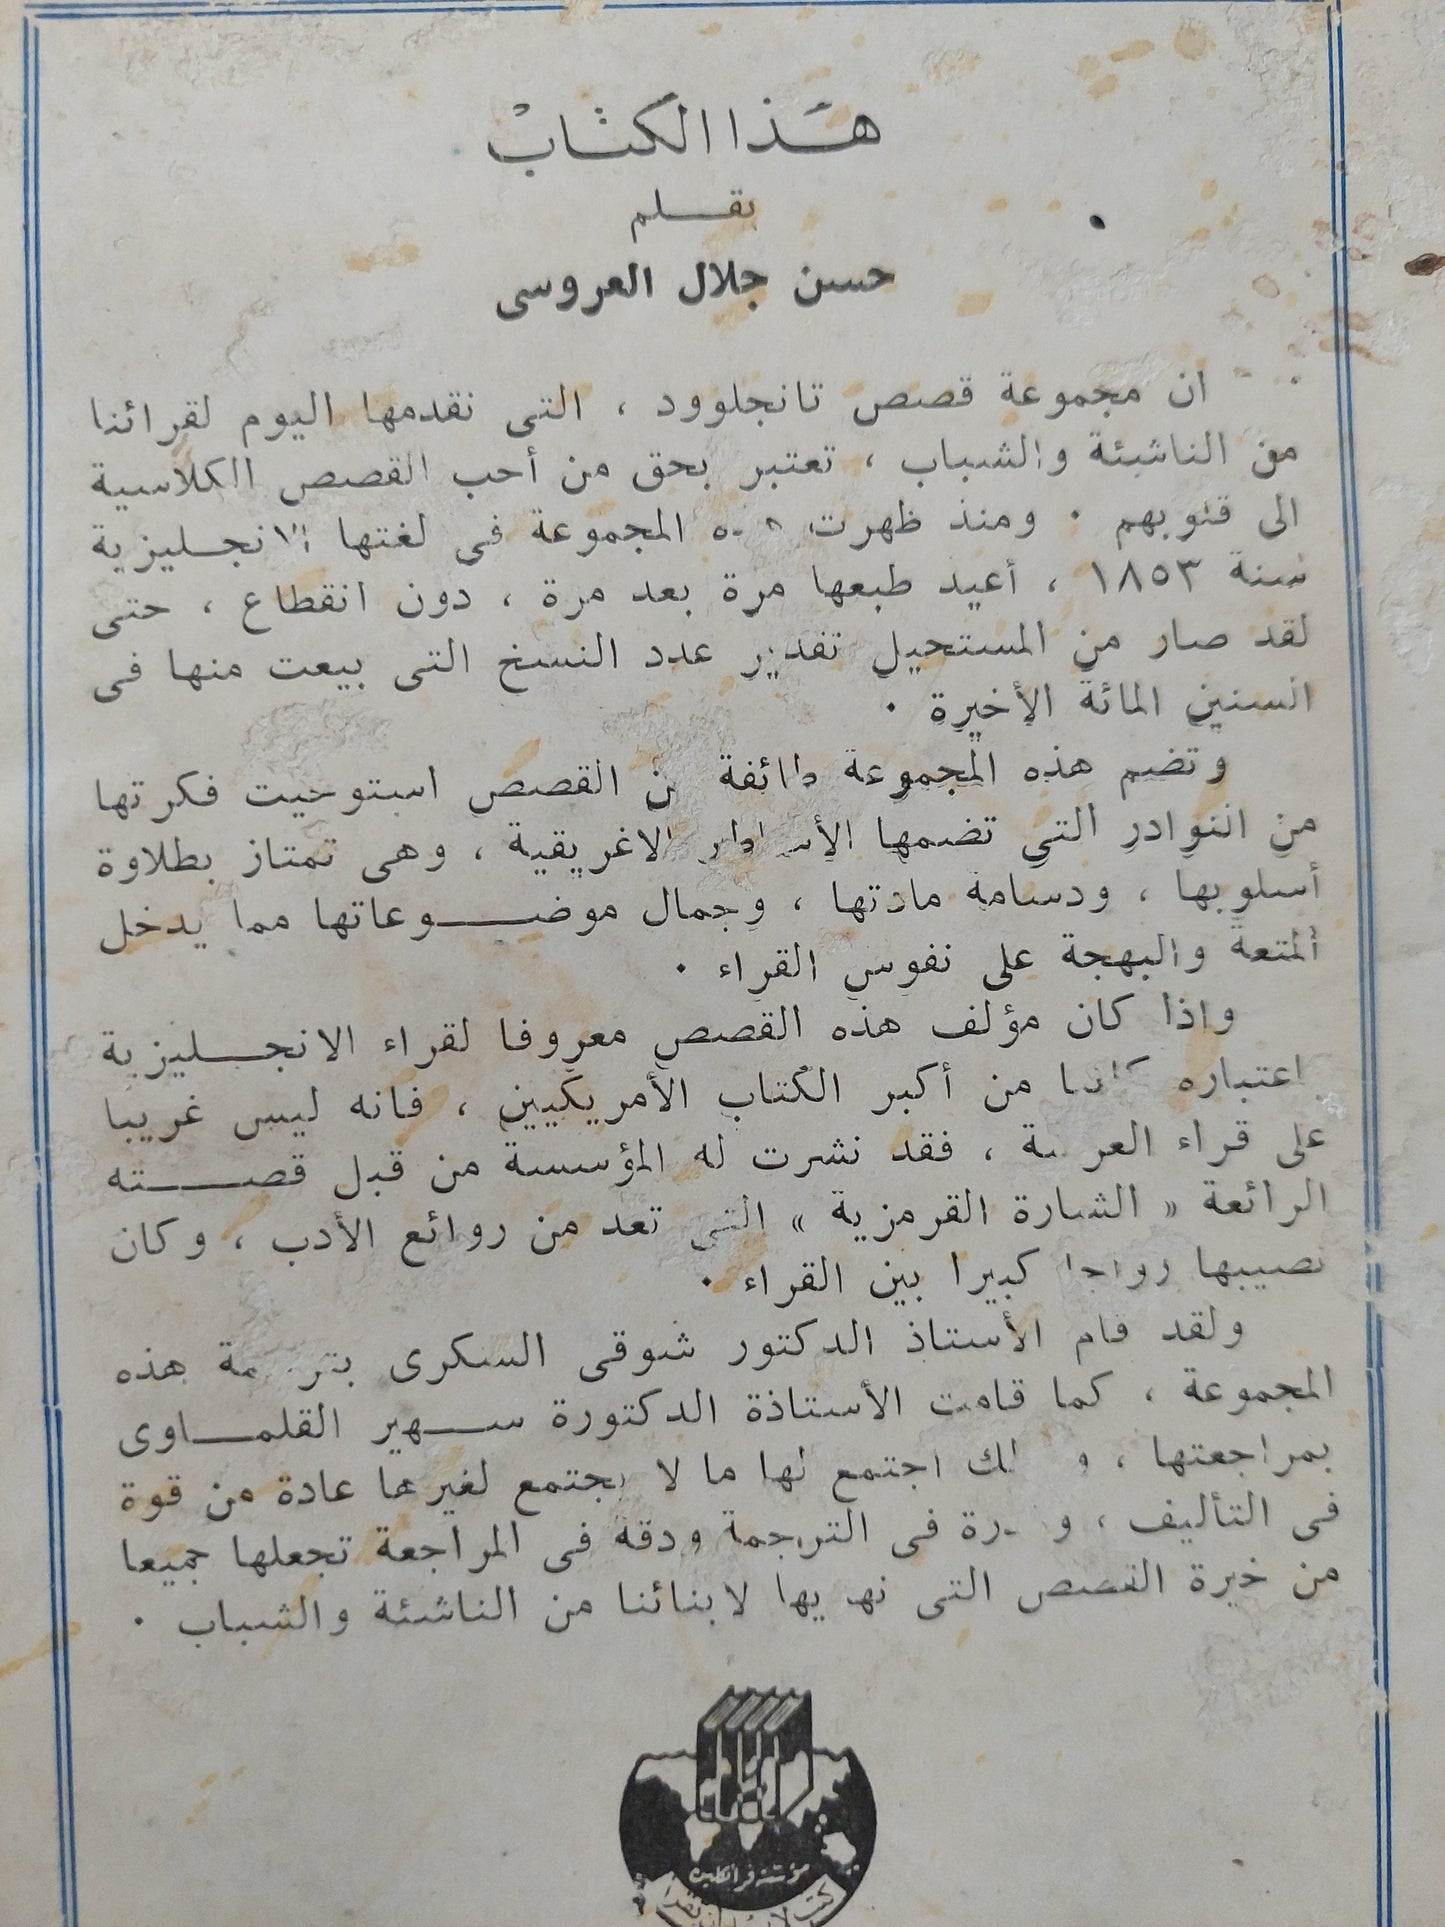 هَذا الكِتَابْ
بقـــلم
حسن جلال العروسى
ان مجموعة قصص تانجلوود ، التى نقدمها اليوم لقرائنا
من الناشئة والشباب ، تعتبر بحق من أحب القصص الكلاسية
الى قلوبهم . ومنذ ظهرت المجموعة فى لغتها الانجـــليزية
سنة ١٨٥٣ ، أعيد طبعها مرة بعد مرة ، دون انقطاع ، حتى
لقد صار من المستحيل تقدير عدد النسخ التى بيعت منها فى
السنين المائة الأخيرة .
وتضم هذه المجموعة طائفة من القصص استوحيت فكرتها
من النوادر التى تضمها الأساطير الاغريقية ، وهى تمتاز بطلاوة
أسلوبها ، ودسامة مادتها ، وجمال موضـــوعاتها مما يدخل
المتعة والبهجة على نفوس القراء .
واذا كان مؤلف هذه القصص معروفا لقراء الانجـــليزية
باعتباره كاتبا من أكبر الكتاب الأمريكيين ، فانه ليس غريبا
على قراء العربية ، فقد نشرت له المؤسسة من قبل قصـــته
الرائعة « الشارة القرمزية » التى تعد من روائع الأدب ، وكان
نصيبها رواجا كبيرا بين القراء .
ولقد قام الأستاذ الدكتور شوقى السكرى بترجمة هذه
المجموعة ، كما قامت الأستاذة الدكتورة ســـهير القلمـــاوى
بمراجعتها ، اجتمع لها ما لا يجتمع لغيرها عادة من قوة
فى التأليف ، فى الترجمة ودقة فى المراجعة تجعلها جميعا
من خيرة القصص التى نهديها لابنائنا من الناشئة والشباب .
مؤسسة فرانكلين